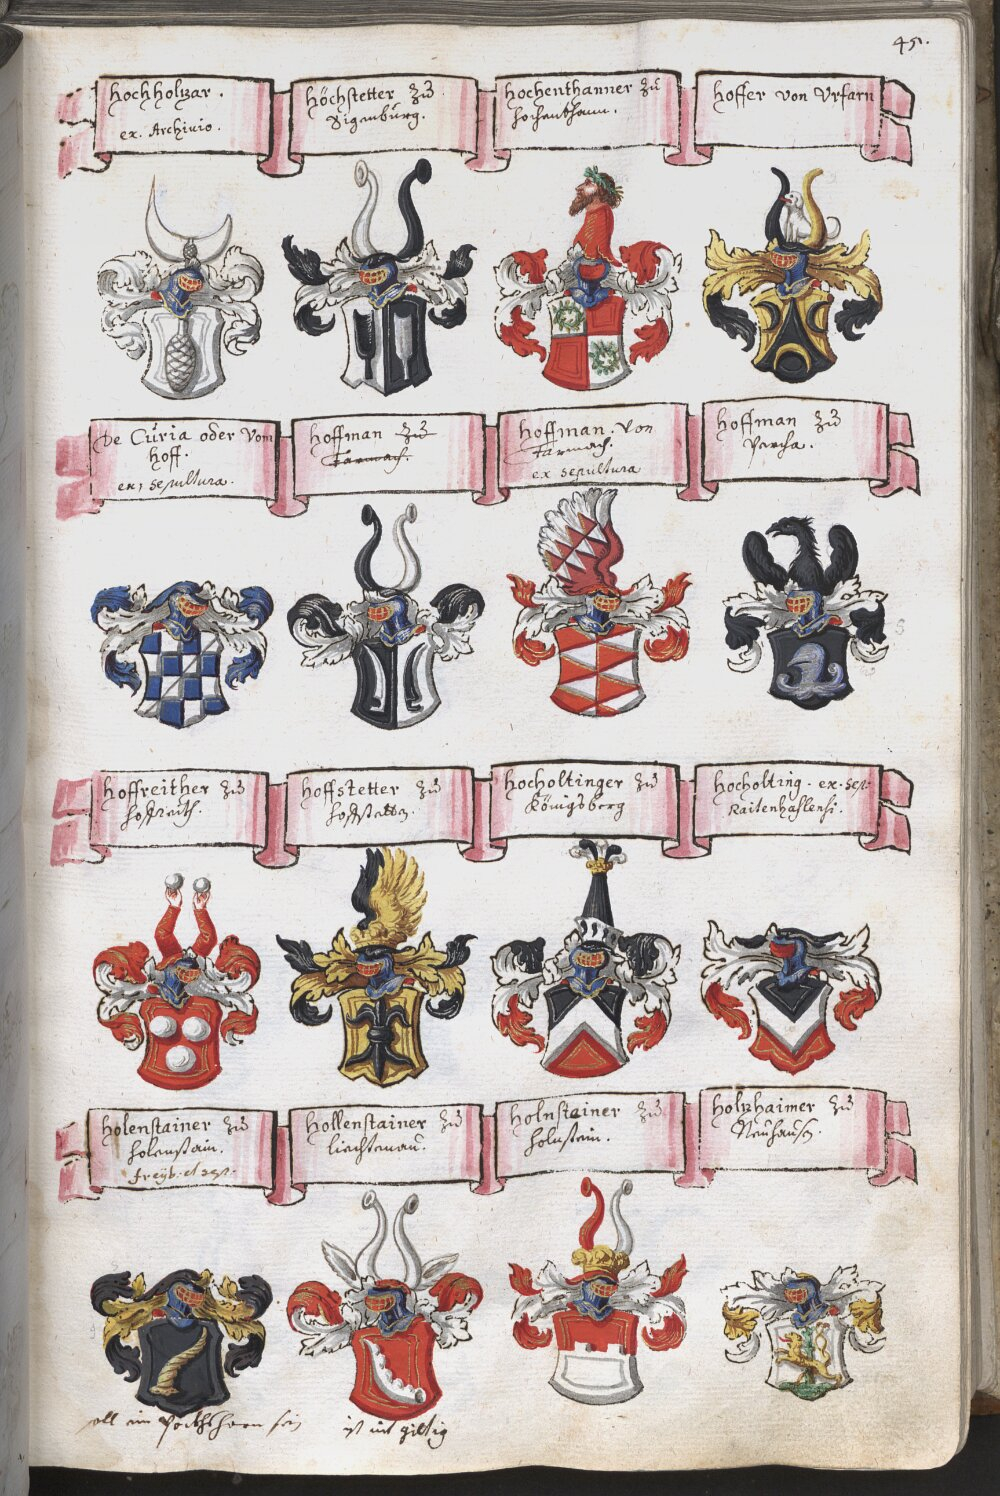 45.
Hochholtzar.
ex. Archivio.
Höchstetter zů
Sigenburg.
Hochenthanner zů
Hochenthann.
Hoffer von Urfarn
De Curia oder Vom
Hoff.
ex; sepultura.
Hoffman zů
Tarmach.
Hoffman. Von
Tarmach.
ex sepultura
Hoffman zů
Parcha.
Hoffreither zů
Hoffreith.
Hoffstetter zů
Hoffstetten.
Hocholtinger zů
Königsberg
Hocholting. ex. Sep.
Raitenhaslensi.
Holenstainer zů
Holenstain.
freyb. et sep.
Hollenstainer zů
Liechtenau.
Holnstainer zů
Holnstein.
Holtzhaimer zů
Neuhausen.
soll ein Pockhshorn sein
ist nit giltig